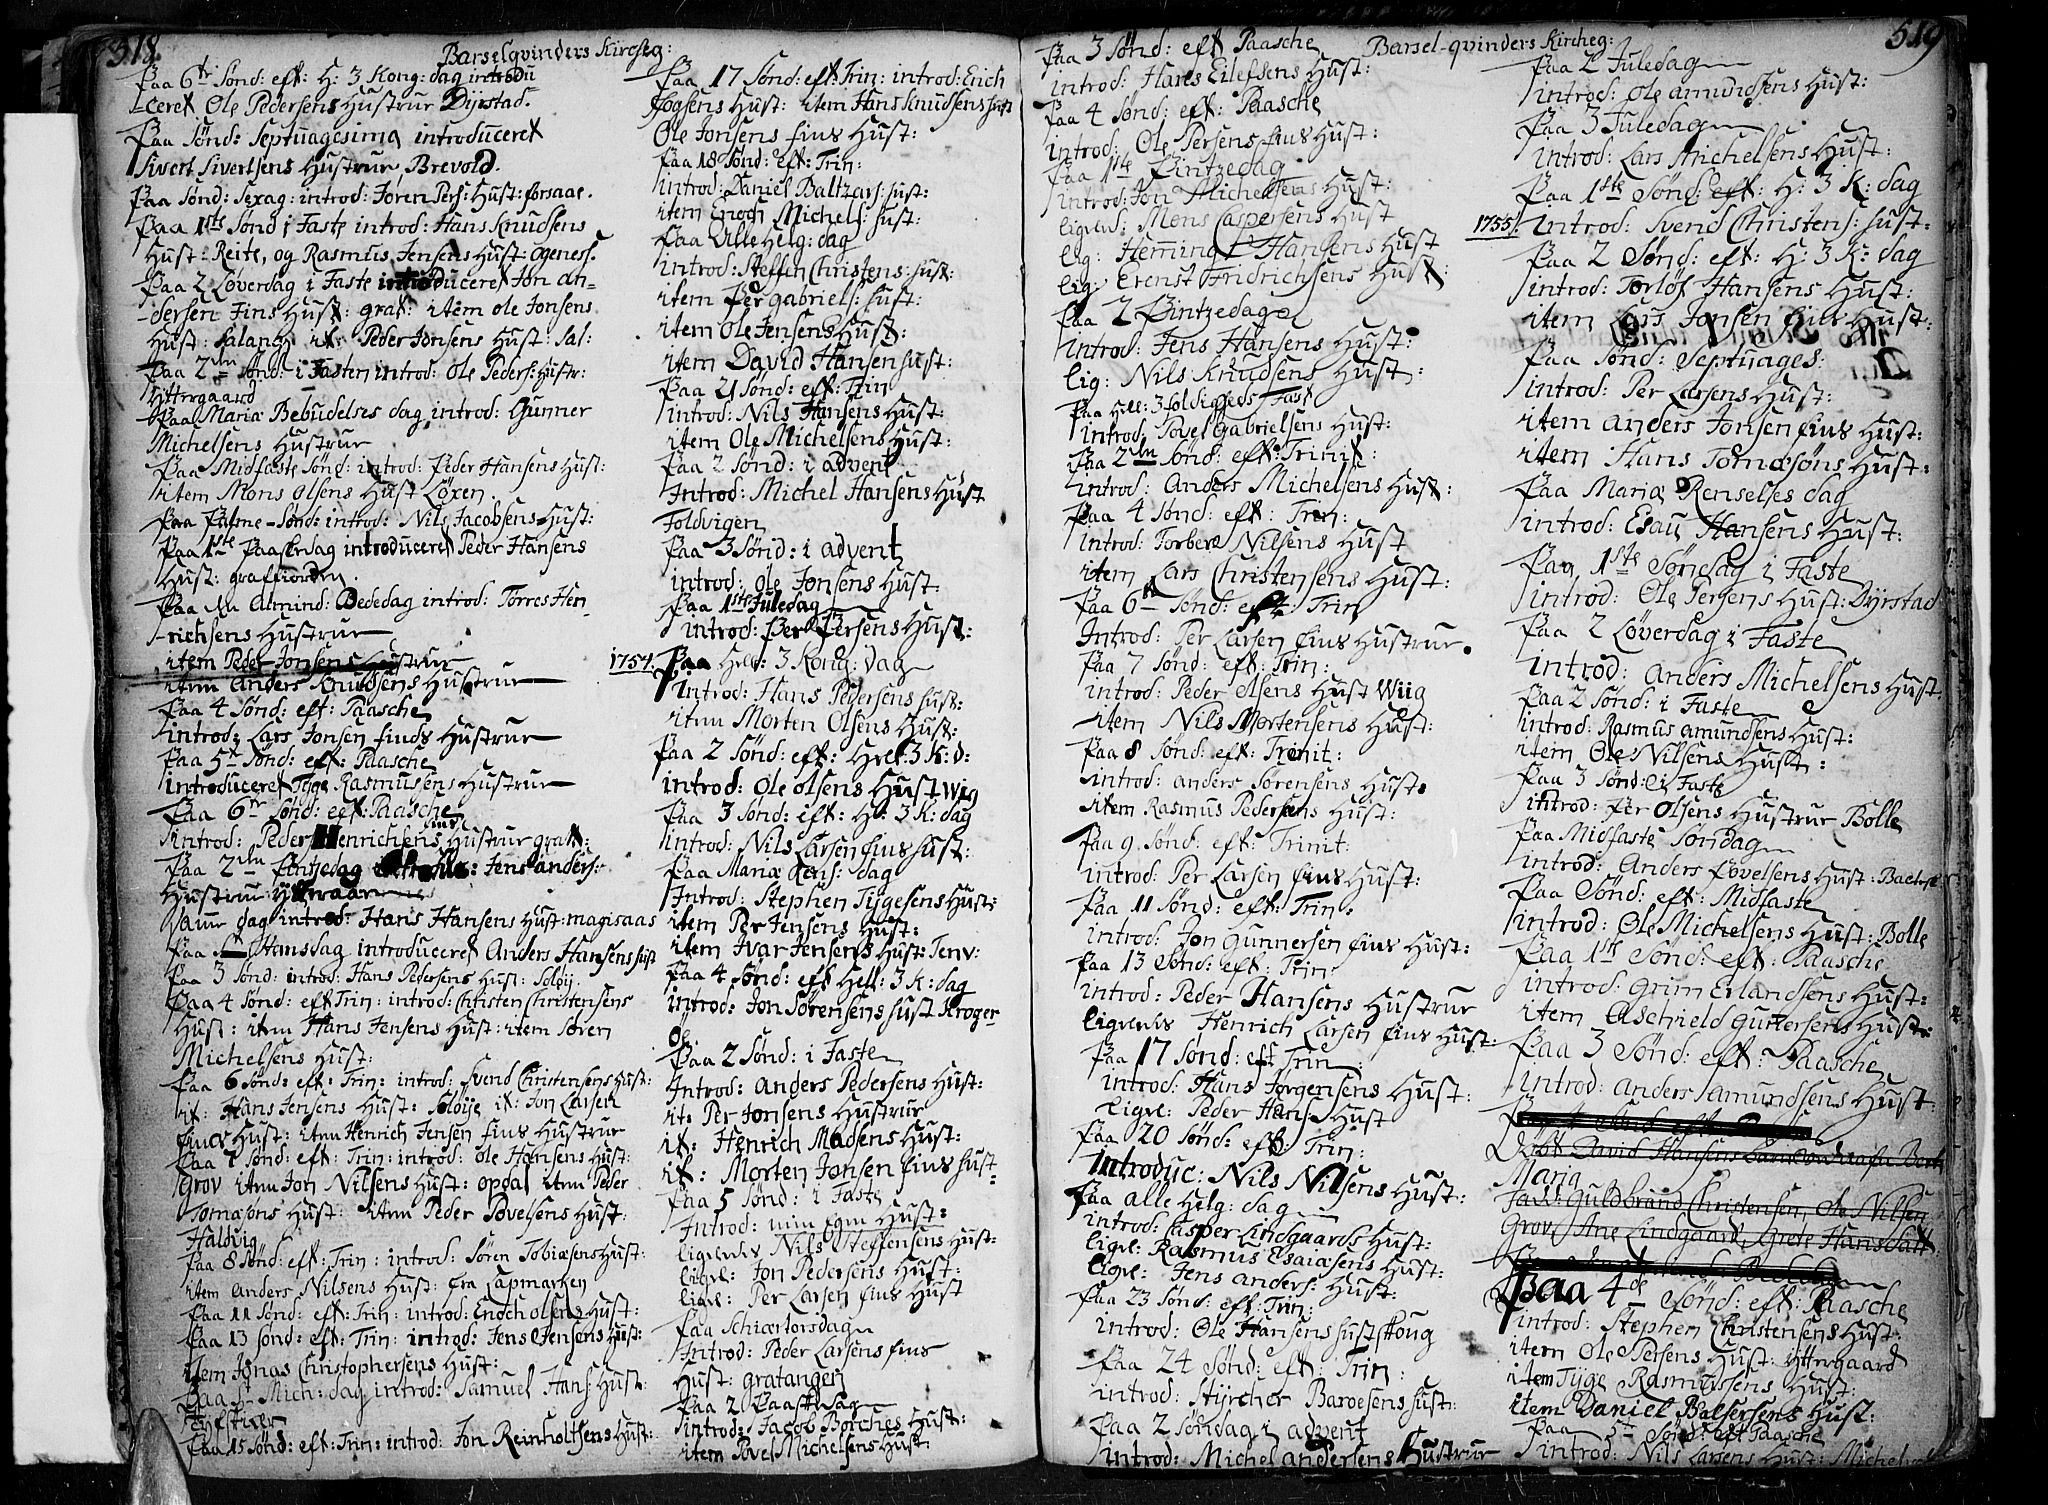 518.
Barselqvinders Kirckeg:
Paa 6te Sønd: eft: H: 3 Kong: dag introdu
-ceret Ole Pedersens Hustrue Dyrstad.
Paa Sønd: Septuagesima introduceret
Sivert Sivertsens Hustrur Brevold.
Paa Sønd: Sexag: introd: Joren Pers: Hust: forsaae.
Paa 1ste Sønd i Faste introd: Hans Knudsens
Hust: Reite, og Rasmus Jensens Hust: ogeness.
Paa 2 Løverdag i Faste introduceret Jon An-
-dersen Fins Hust: grat: item ole Jonsens
Hust: Salang it: Peder Jonsens Hust: Sal:
Paa 2den Sønd: i Fasten introd: Ole Peders: Hustr:
Yttergaard
Paa Mariæ Bebudelses dag introd: Gunner
Michelsens Hustrur
Paa Midfaste Sønd: introd: Peder Hansens Hust:
item Mons Olsens Hust Løxen.
Paa Palme-Sønd: introd: Nils Jacobsens Hust:
Paa 1ste Paaskedag introduceret Peder Hansens
Hust: graffiorden.
Paa den Almind: Bededag introd: Torres Hen-
-richsens Hustrur
item Peder Jonsens Hustrur
item Anders Knudsens Hustrur
Paa 4 Sønd: eft: Paasche
introd: Lars Jonsen finds Hustrur
Paa 5t Sønd: eft: Paasche
introduceret Tyge Rasmussens Hustrur
Paa 6te Sønd: eft: Paasche
introd: Peder Henrichsens fins Hustrur grat:
Paa 2den Pintzedag introd: Jens Anders:
Hustrur
Samme dag introd: Hans Hansens Hust: magisaas
Paa St Hansdag introduceret Anders Hansens Hust
Paa 3 Sønd: introd: Hans Pedersens Hust: Soløy.
Paa 4 Sønd: eft Trin: introd: Christen Christensens
Hust: item Hans Jensens Hust: item Søren
Michelsens Hust:
Paa 6 Sønd: eft: Trin: introd: Svend Christensens Hust:
it: Hans Jensens Hust: Soløye it: Jon Larsen
fines Hust: item Henrich Jensen fins Hustrur
Paa 7 Sønd: eft: Trin: introd: ole Hansens Hust:
grov item Jon Nilsens Hust: opdal item Peder
Tomæsøns Hust: item Peder Povelsens Hust:
Haldvig
Paa 8 Sønd: eft: Trin: introd: Søren Tobiæsens Hust:
item Anders Nilsens Hust: fra Lapmarken
Paa 11 Sønd: eft: Trin: introd: Enoch Olsens Hust:
Paa 13 Sønd: eft: Trin: introd: Jens Jensens Hust:
item Jonas Christophersens Hust:
Paa St Mich: dag introd: Samuel Hans: Hust:
Paa 15 Sønd: eft: Trin: introd: Jon Reinholtsens Hust:
Paa 17 Sønd: eft: Trin: introd: Erich
Fogsens Hust: item Hans Knudsens Hust
Ole Jonsens fins Hust:
Paa 18 Sønd: eft: Trin:
introd: Daniel Baltzars: Hust:
item Enoch Michels: Hust:
Paa Alle Helg: dag
introd: Steffen Christens: Hust:
item Per gabriels: Hust:
item Ole Jensens Hust:
item David Hansen Hust:
Paa 21 Sønd: eft: Trin
introd: Nils Hansens Hust:
item Ole Michelsens Hust:
Paa 2 Sønd: i advent
Introd: Michel Hansens Hust
Foldvigen
Paa 3 Sønd: i advent
introd: Ole Jonsens Hust:
Paa 1ste Juledag
introd: Per Persens Hust:
1754. Paa Hell: 3 Kong: dag
introd: Hans Pedersens Hust:
item Morten Olsens Hust:
Paa 2 Sønd: eft: Hell: 3 K: d:
introd: Ole Olsens Hust Wig
Paa 3 Sønd: eft: H: 3 K: dag
introd: Nils Larsen fins Hust:
Paa Mariæ Rens: dag
Introd: Stephen Tygesens Hust:
item Per Jensens Hust:
item Ivar Jensens Hust: Tenv:
Paa 4 Sønd: eft Hell: 3 K: dag
introd: Jon Sørensens Hust Kroger-
Øe.
Paa 2 Sønd: i Faste
Introd: Anders Pedersens Hust:
it: Per Jonsens Hustrur
it: Henrich Madsens Hust:
it: Morten Jonsen fins Hust-
Paa 5 Sønd: i Faste
Introd: min Egen Hust:
ligeledes Nils Steffensens Hust:
ligel: Jon Pedersens Hust:
ligel: Per Larsen fins Hust
Paa Schiærtorsdag
Introd: Peder Larsens fins
Hust: gratangen
Paa 2 Paaske Dag
introd: Jacob Borches Hust:
item Povel Michelsens Hust
519
Barsel-qvinders Kircheg:
Paa 3 Sønd: eft Paasche
introd: Hans Eilefsens Hust:
Paa 4 Sønd: eft: Paasche
introd: Ole Persens fins Hust:
Paa 1ste Pintzedag
introd: Jon Michelsens Hust:
ligeled: Mons Caspersens Hust
lig: Hemming Hansens Hust
lig: Ernst Fridrichsens Hust:
Paa 2 Pintzedag
introd: Jens Hansens Hust:
lig: Nils Knudsens Hust:
Paa Hell: 3foldigheds Fest
introd: Povel Gabrielsens Hust:
Paa 2den Sønd: eft: Trinit:
introd: Anders Michelsens Hust:
Paa 4 Sønd: eft: Trin:
introd: Torbere Nilsens Hust
item Lars Christensens Hust:
Paa 6te Sønd: eft: Trin
Introd: Per Larsen fins Hustrur.
Paa 7 Sønd: eft: Trin:
introd: Peder Olsens Hust Wiig
item Nils Mortensens Hust:
Paa 8 Sønd: eft: Trinit:
introd: anders Sørensens Hust:
item Rasmus Pedersens Hust:
Paa 9 Sønd: eft: Trinit:
introd: Per Larsen fins Hust:
Paa 11 Sønd: eft: Trin:
introd: Jon Gunnersen fins Hust:
Paa 13 Sønd: eft: Trin:
introd: Peder Hansens Hustrur
ligeledes Henrich Larsen fins Hust:
Paa 17 Sønd: eft Trin:
introd: Hans Jørgensens Hust:
ligel: Peder Hans: Hust
Paa 20 Sønd: eft Trin:
introduc: Nils Nilsens Hust:
Paa alle Helg: dag
introd: Casper Lindgaards Hust:
ligel: Rasmus Esaiæsens Hust:
ligel: Jens anders: Hust:
Paa 23 Sønd: eft Trin:
introd: Ole Hansens Hust Skoug
Paa 24 Sønd: eft: Trin:
introd: Styrcher Baroesens Hust:
Paa 2 Søndag i advent
introd: Michel andersens Hustrur
Paa 2 Juledag
introd: Ole amundsens Hust:
Paa 3 Juledag
introd: Lars Michelsens Hust:
Paa 1ste Sønd: eft: H: 3 K: dag
1755. introd: Svend Christens: Hust:
Paa 2 Sønd: eft: H: 3 K: dag
introd: Torløf Hansens Hust:
item Lars Jonsen fins Hust:
Paa Sønd: Septuages:
introd: Per Larsens Hust:
item anders Jonsen fins Hust:
item Hans Tomæsøns Hust:
Paa Mariæ Renselses dag
introd: Esau Hansens Hust:
Paa 1ste Søndag i Faste
introd: Ole Persens Hust: Dyrstad
Paa 2 Løverdag i Faste
introd: Anders Michelsens Hust
Paa 2 Sønd: i Faste
introd: Rasmus amundsens Hust:
item Ole Nilsens Hust:
Paa 3 Sønd: i Faste
introd: Per Olsens Hustrur Bolle
Paa Midfaste Søndag
introd: Anders Povelsens Hust:
Paa Sønd: eft: Midfaste
introd: Ole Michelsens Hust: Bolle
Paa 1ste Sønd: eft: Paasche
introd: Grim Erlandsens Hust:
item Aschield Guttersens Hust:
Paa 3 Sønd: eft: Paasche
introd: anders Samundsens Hust:
Døbt David Hansens barn
Maria
Fad: Guldbrand Christensen, Ole Nilsen
Grov, Ane Lindgaard, Grete Hans Datt
Paa 4de Sønd: eft: Paasche
introd: Stephen Christensens Hust:
item Ole Persens Hust: Yttergaard
item Tyge Rasmussens Hust:
item Daniel Balsersens Hust:
Paa 5te Sønd: eft Paasche
introd: Nils Larsens Hust: